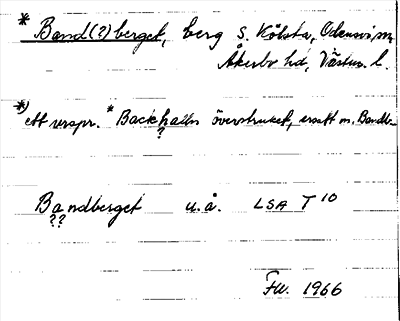 * Band(?)berget, berg S. Kölsta, Odensvi sn
Åkerbo hd, Västm. l.
*) ett urspr. * Backhallen överstruket, ersatt m. Bandb-
?
Bandberget u.å. LSA T 10
??
FW. 1966